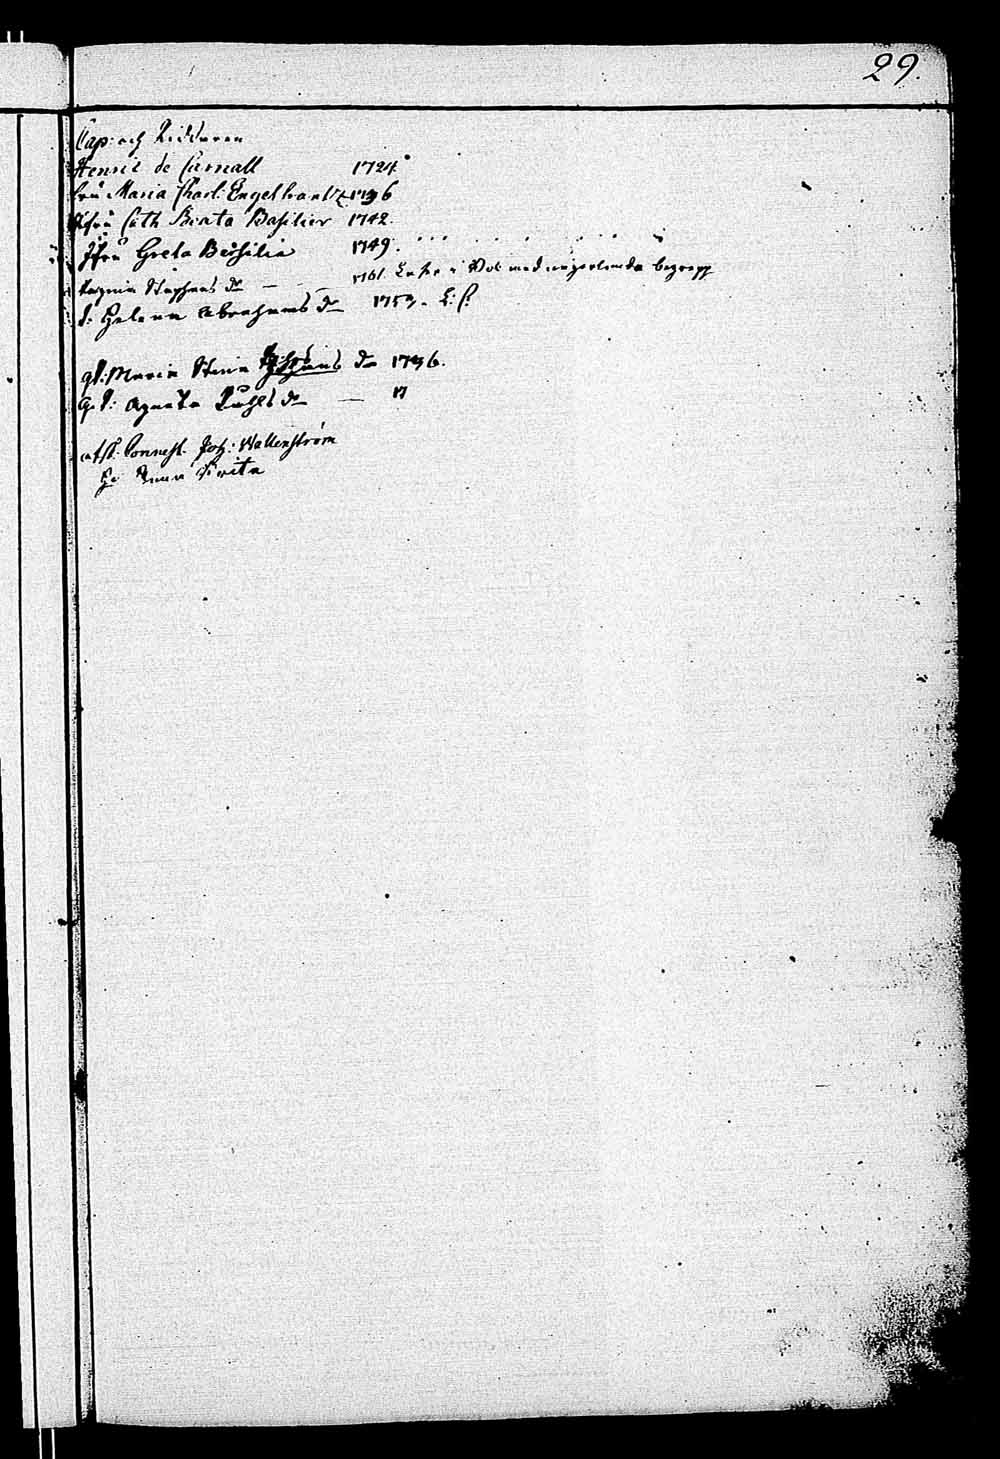 29.
Cap: och Riddaren
Henric de Carnall 1724
fru Maria Charl. Engelbrant 1736
Jfru Cath Beata Basilier 1742.
Jfru Greta Basilia 1749.
Stephans dr 1761. med
d: Helena Abrahams dr 1753.
gl: Maria Stina dr 1736.
gl: Agneta dr — 17
afsk. Connest. Joh: Wallenström
Hu Anna Brita